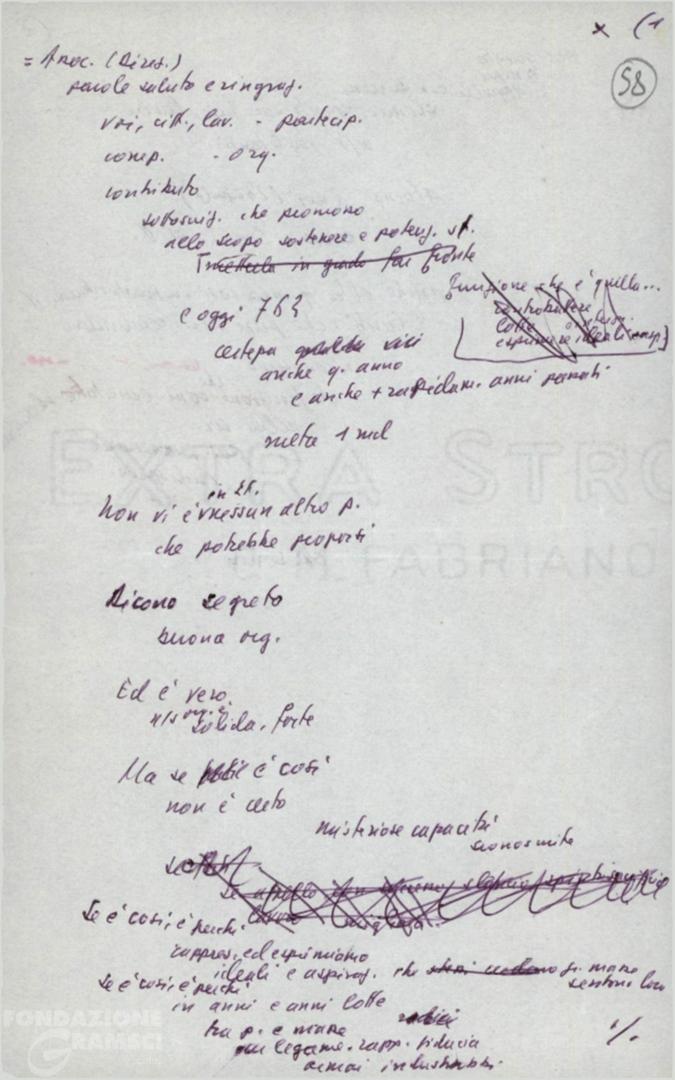 x (1
58
= Assoc. (Direz.)
parole saluto e ringraz.
voi, citt., lav. - partecip.
comp. - org.
contributo
sottoscriz. che promono
allo scopo sostenere e potenz. st.
Metterla in grado far fronte
Funzione che è quella...
controbattere
lotte
esprimere ideali
e oggi 763
certezza
anche q. anno
e anche + rapidam. anni passati
meta 1 mil
EXTRA STRO
FABRIANO
in It.
Non vi è nessun altro p.
che potrebbe proporsi
Dicono segreto
buona org.
Ed è vero
n/s org. è
solida, forte
Ma se è così
non è certo
misteriose capacità
sconosciute
Se è così, è perché
rappres. ed esprimiamo
ideali e aspiraz. che gr. masse
sentono loro
Se è così, è perché
in anni e anni lotte
tra p. e masse
un legame - rapp. fiducia
ormai indistruttibili
./.
FONDAZIONE
GRAMSCI